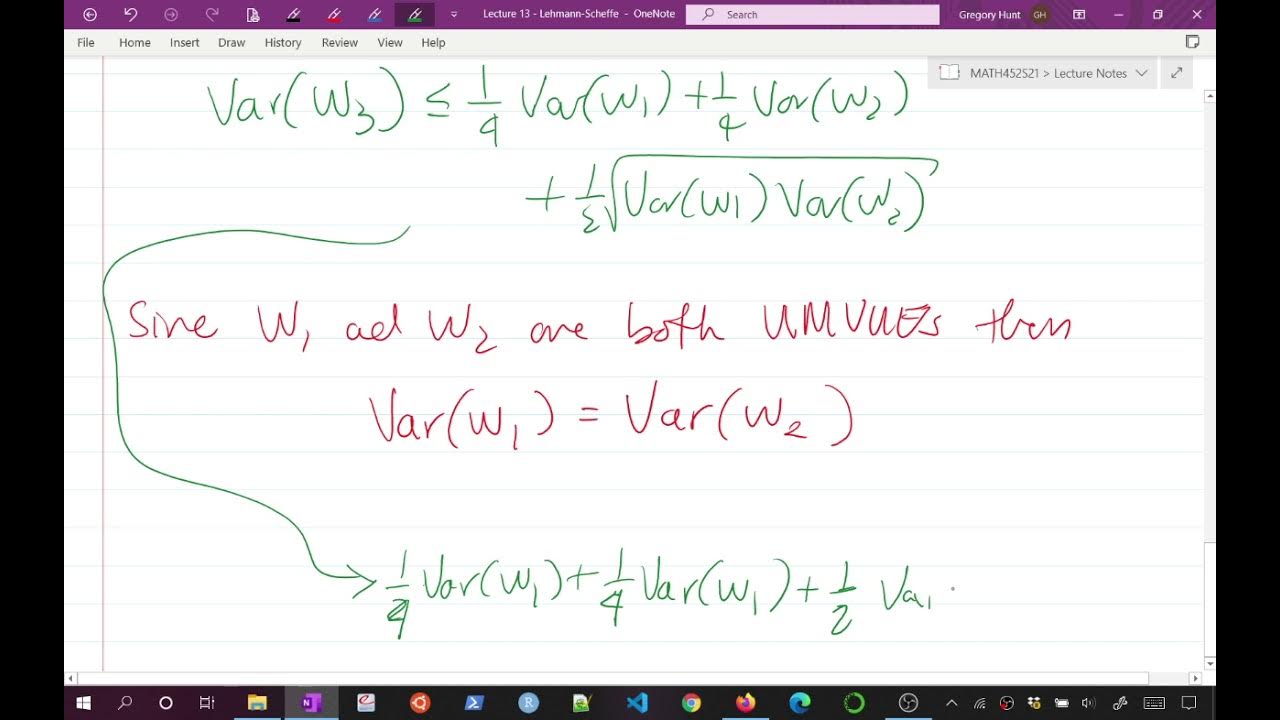 Lecture 13 - Lehmann-Scheffe - OneNote
Search
Gregory Hunt GH
File Home Insert Draw History Review View Help
MATH452S21 > Lecture Notes
Var(W₃) ≤ 1/4 Var(W₁) + 1/4 Var(W₂)
+ 1/2 √Var(W₁) Var(W₂)
Sine W₁ ad W₂ are both UMVUEs then
Var(W₁) = Var(W₂)
1/4 Var(W₁) + 1/4 Var(W₁) + 1/2 Var